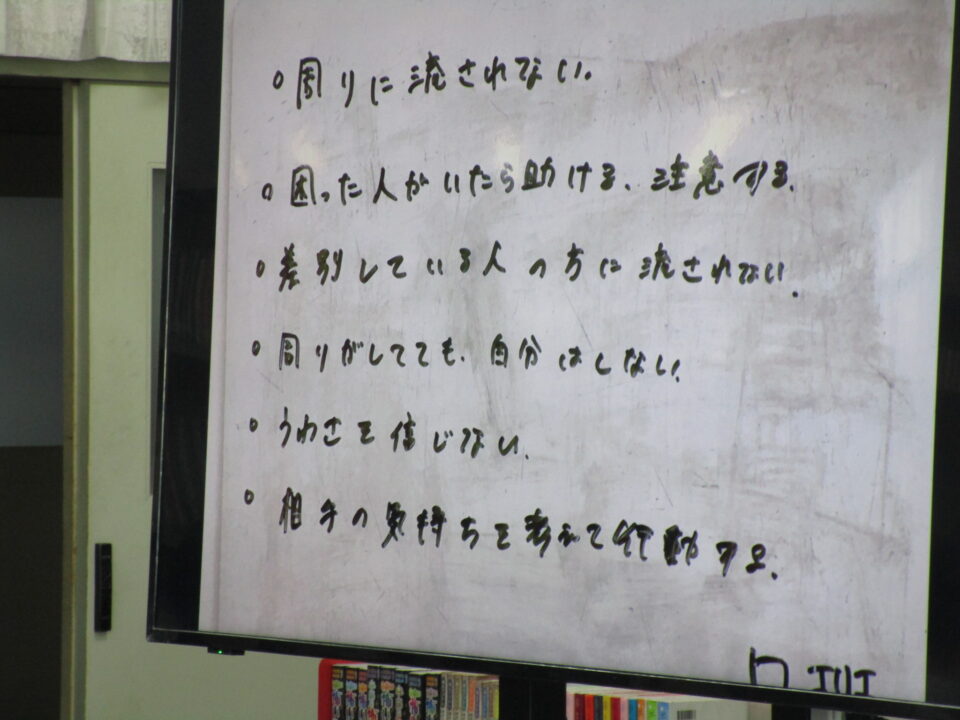 ○周りに流されない。
○困った人がいたら助ける、注意する。
○差別している人の方に流されない。
○周りがしてても、自分はしない。
○うわさを信じない。
○相手の気持ちを考えて行動する。